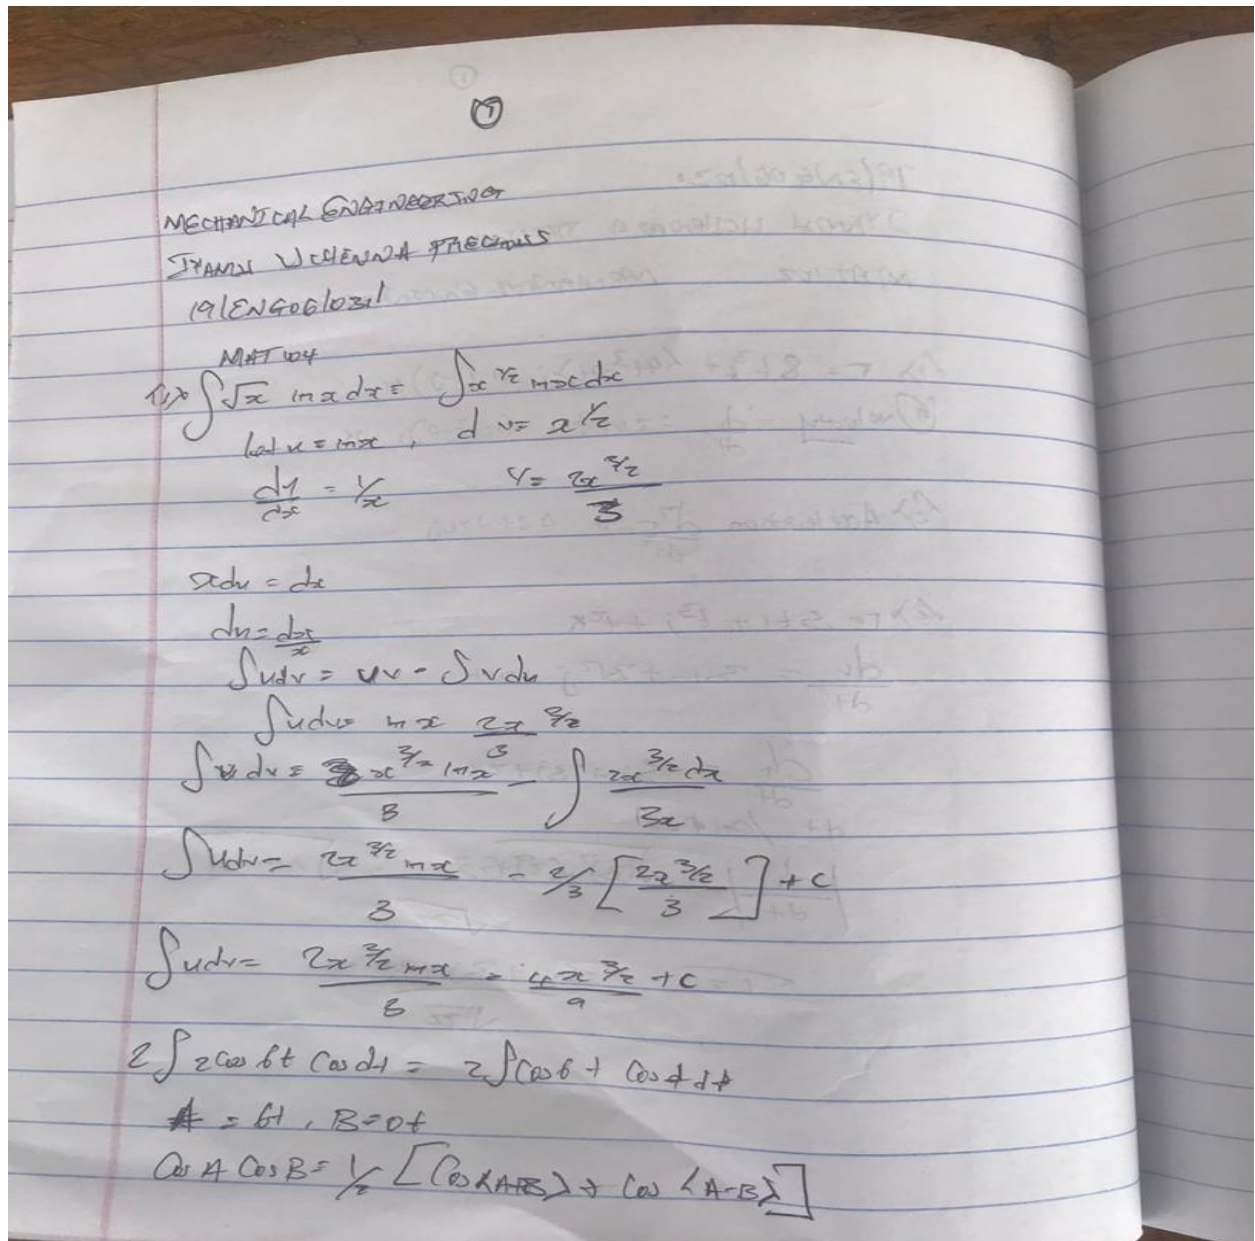 ①
MECHANICAL ENGINEERING
UCHENNA PRECIOUS
19/ENG06/031
MAT 104
1) ∫√x lnx dx = ∫x^1/2 lnx dx
Let u = lnx, dv = x^1/2
dy/dx = 1/x V = 2x^3/2/3
xdu = dx
du = dx/x
∫udv = uv - ∫vdu
∫udv = lnx 2x^3/2/3
∫udv = x^3/2 lnx/3 - ∫2x^3/2 dx/3x
∫udv = 2x^3/2 lnx/3 - 2/3 [2x^3/2/3] + C
∫udv = 2x^3/2 lnx/3 - 4x^3/2/9 + C
2 ∫2cos 6t Cos dt = 2∫Cos 6t Cos t dt
A = 6t, B = 0t
Cos A Cos B = 1/2 [Cos (A+B) + Cos (A-B)]